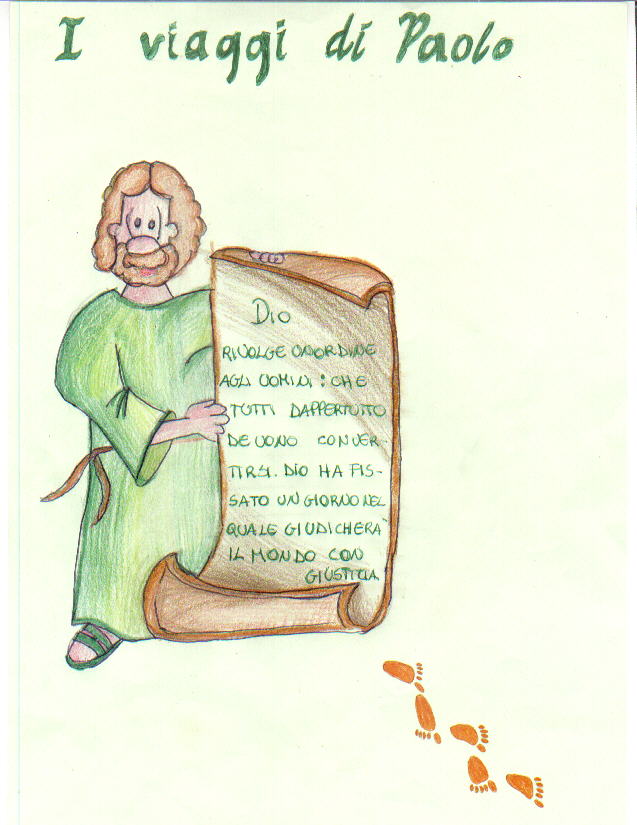 I viaggi di Paolo
DIO
RIVOLGE UNORDINE
AGLI UOMINI : CHE
TUTTI DAPPERTUTTO
DEVONO CONVER-
TIRSI. DIO HA FIS-
SATO UN GIORNO NEL
QUALE GIUDICHERÀ
IL MONDO CON
GIUSTIZIA